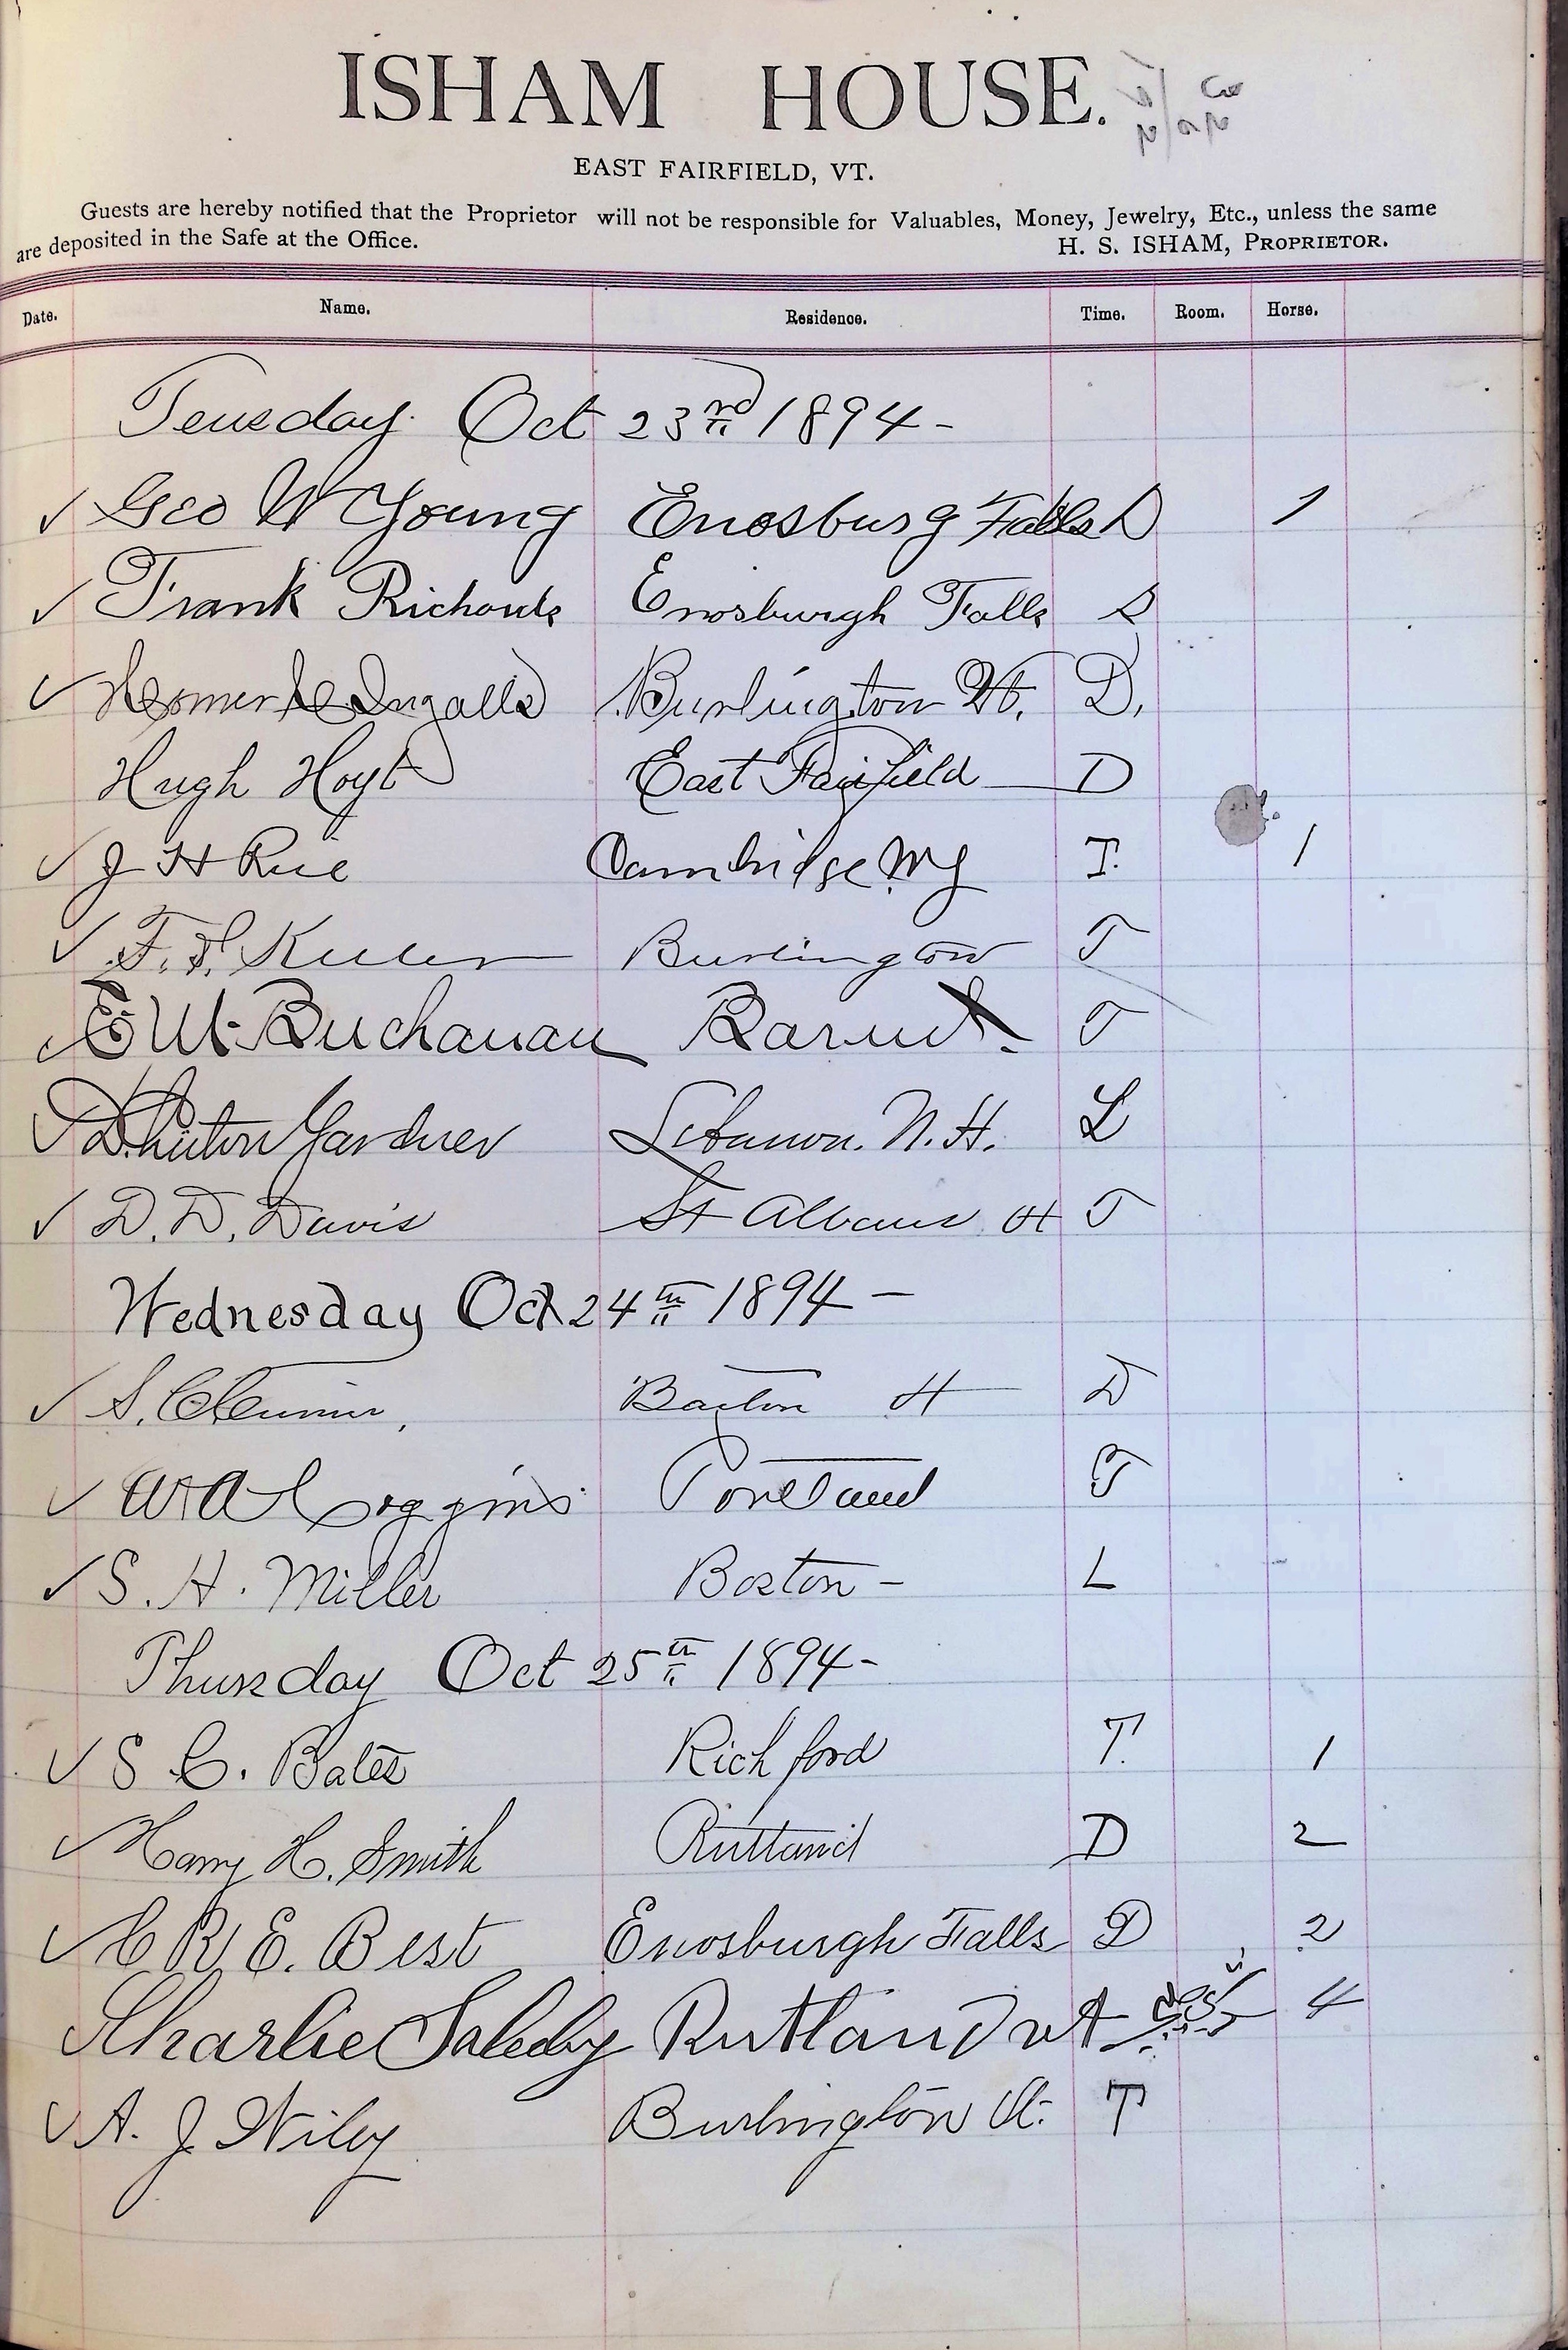 ISHAM HOUSE.
EAST FAIRFIELD, VT.
Guests are hereby notified that the Proprietor will not be responsible for Valuables, Money, Jewelry, Etc., unless the same
are deposited in the Safe at the Office. H. S. ISHAM, PROPRIETOR.
Date. Name. Residence. Time. Room. Horse.
Teusday Oct 23rd 1894-
✓ Geo W Young Enosburg Falls D 1
✓ Frank Richards Enosburgh Falls S
✓ Homer Ingalls Burlington Vt. D,
Hugh Hoyt East Fairfield D
✓ J H Rice Cambridge T. 1
✓ F. Burlington T
✓ E W. Buchanan T
✓ Gardner Lebanon. N. H. L
✓ D. D. Davis St Albans Vt T
Wednesday Oct 24th 1894 -
✓ S. Barton Vt D
✓ W A Coggins Portland T
✓ S. H. Miller Boston - L
Thursday Oct 25th 1894-
✓ S C. Bates Richford T. 1
✓ Harry H. Smith Rutland D 2
✓ C R E. Best Enosburgh Falls D 2
Charlie Rutland vt 4
✓ A. J. Wiley Burlington Vt. T